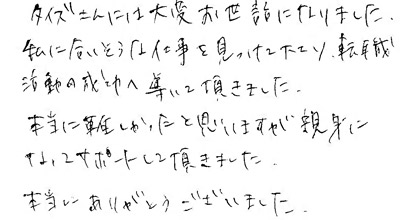 タイズさんには大変お世話になりました。
私に合いそうな仕事を見つけて下さり、転職
活動の成功へ導いて頂きました。
本当に難しかったと思いますが親身に
なってサポートして頂きました。
本当にありがとうございました。